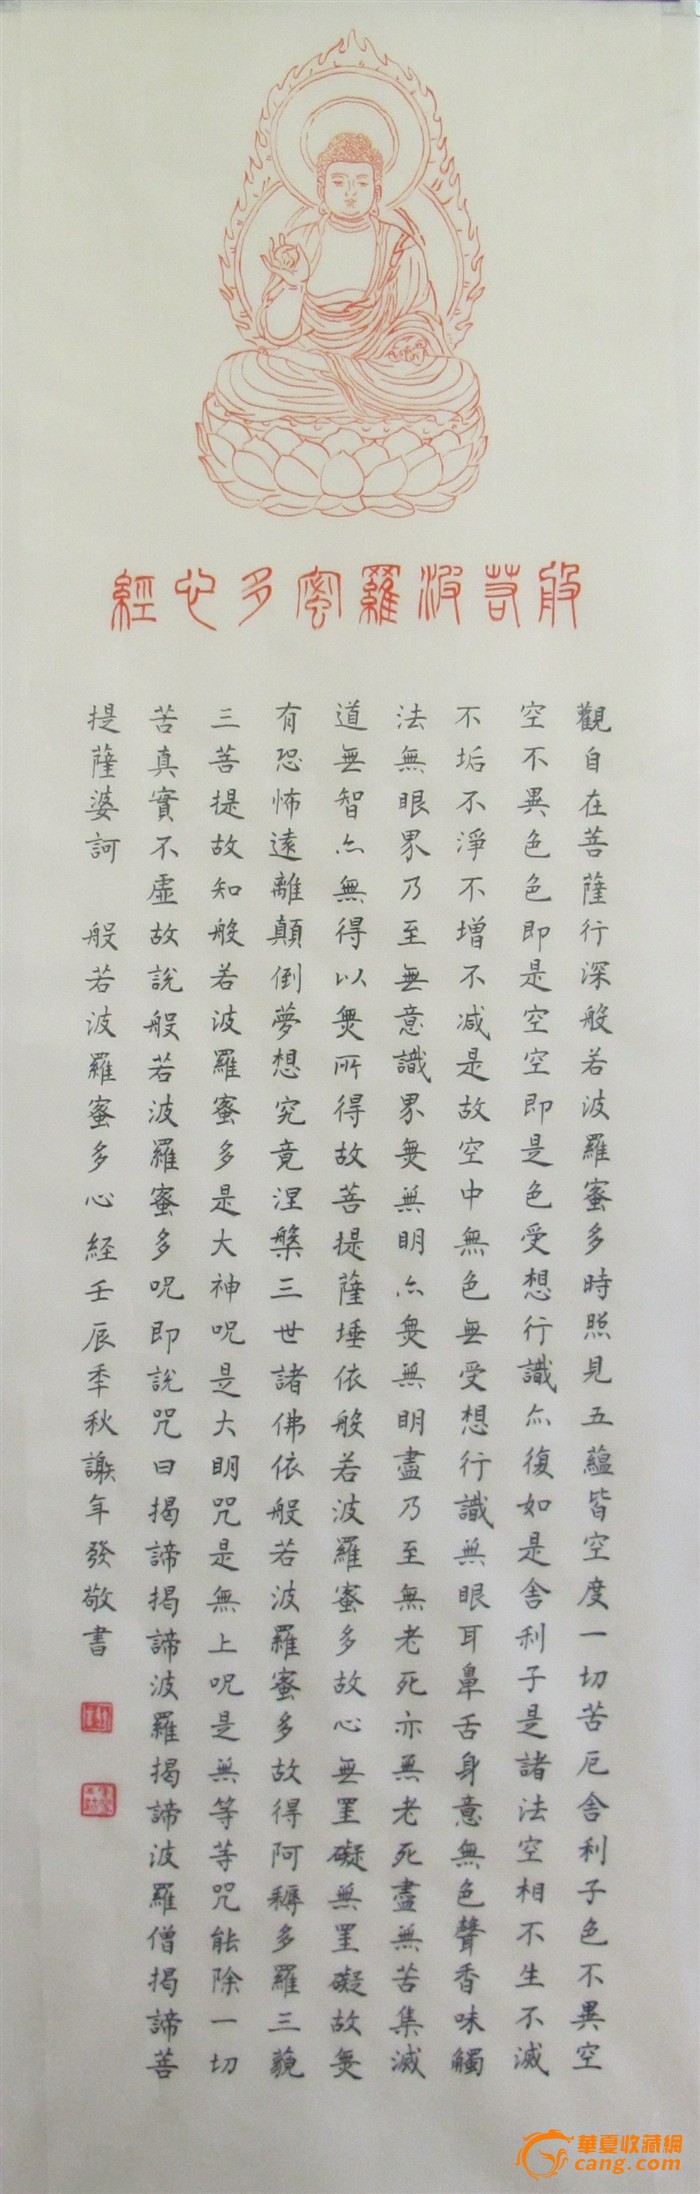 般若波羅蜜多心經
觀自在菩薩行深般若波羅蜜多時照見五蘊皆空度一切苦厄舍利子色不異空
空不異色色即是空空即是色受想行識亦復如是舍利子是諸法空相不生不滅
不垢不淨不增不减是故空中無色無受想行識無眼耳鼻舌身意無色聲香味觸
法無眼界乃至無意識界無無明亦無無明盡乃至無老死亦無老死盡無苦集滅
道無智亦無得以無所得故菩提薩埵依般若波羅蜜多故心無罣礙無罣礙故無
有恐怖遠離顛倒夢想究竟涅槃三世諸佛依般若波羅蜜多故得阿耨多羅三藐
三菩提故知般若波羅蜜多是大神呪是大明咒是無上呪是無等等咒能除一切
苦真實不虛故說般若波羅蜜多呪即說咒曰揭諦揭諦波羅揭諦波羅僧揭諦菩
提薩婆訶 般若波羅蜜多心経壬辰季秋謝年發敬書
華夏收藏網
cang.com